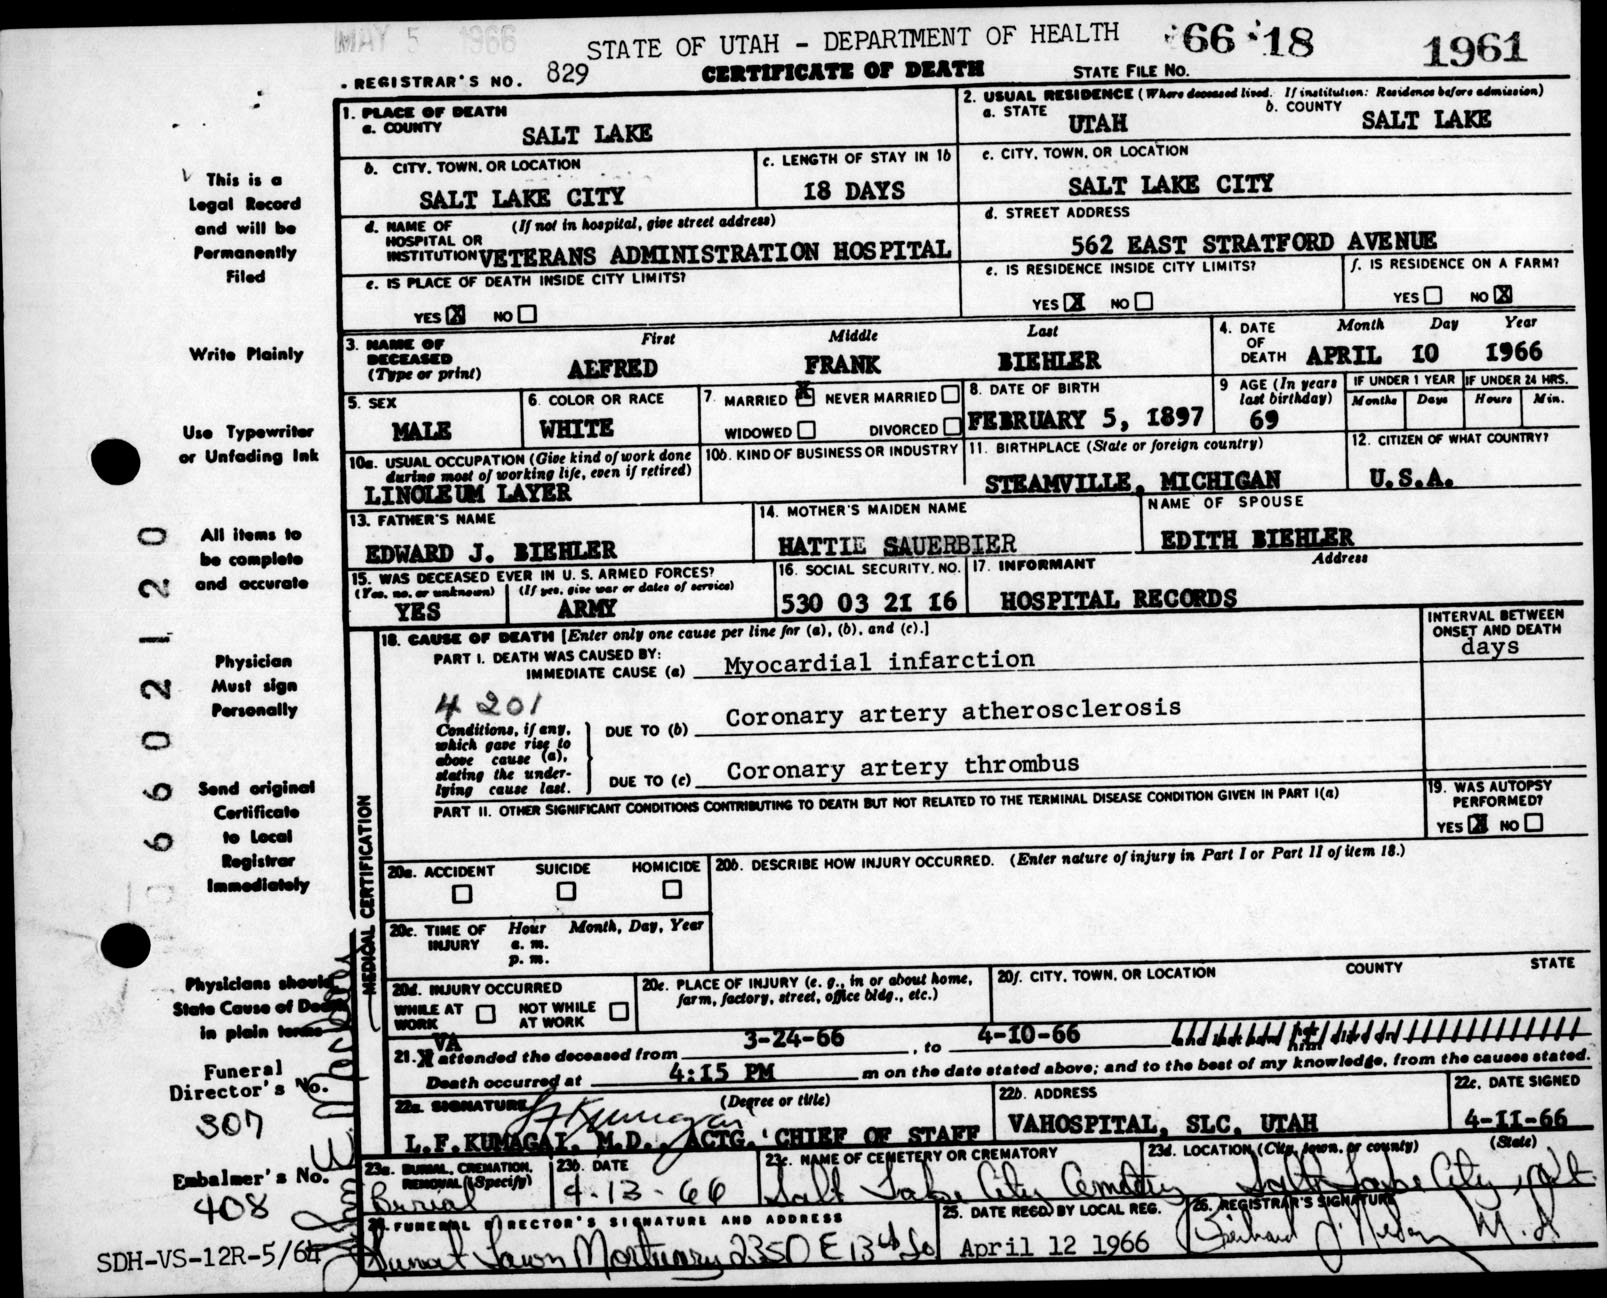 MAY 5 1966
STATE OF UTAH - DEPARTMENT OF HEALTH
66 18 1961
REGISTRAR'S NO. 829
CERTIFICATE OF DEATH
STATE FILE No.
1. PLACE OF DEATH
a. COUNTY
SALT LAKE
2. USUAL RESIDENCE (Where deceased lived. If institution: Residence before admission)
a. STATE UTAH b. COUNTY SALT LAKE
b. CITY, TOWN, OR LOCATION
SALT LAKE CITY
c. LENGTH OF STAY IN 1b
18 DAYS
c. CITY, TOWN, OR LOCATION
SALT LAKE CITY
d. NAME OF HOSPITAL OR INSTITUTION (If not in hospital, give street address)
VETERANS ADMINISTRATION HOSPITAL
d. STREET ADDRESS
562 EAST STRATFORD AVENUE
e. IS PLACE OF DEATH INSIDE CITY LIMITS?
YES X NO
e. IS RESIDENCE INSIDE CITY LIMITS?
YES X NO
f. IS RESIDENCE ON A FARM?
YES NO X
3. NAME OF DECEASED (Type or print)
First Middle Last
ALFRED FRANK BIEHLER
4. DATE OF DEATH
Month Day Year
APRIL 10 1966
5. SEX
MALE
6. COLOR OR RACE
WHITE
7. MARRIED X NEVER MARRIED
WIDOWED DIVORCED
8. DATE OF BIRTH
FEBRUARY 5, 1897
9 AGE (In years last birthday)
69
IF UNDER 1 YEAR
Months Days
IF UNDER 24 HRS.
Hours Min.
10a. USUAL OCCUPATION (Give kind of work done during most of working life, even if retired)
LINOLEUM LAYER
10b. KIND OF BUSINESS OR INDUSTRY
11. BIRTHPLACE (State or foreign country)
STEAMVILLE, MICHIGAN
12. CITIZEN OF WHAT COUNTRY?
U.S.A.
13. FATHER'S NAME
EDWARD J. BIEHLER
14. MOTHER'S MAIDEN NAME
HATTIE SAUERBIER
NAME OF SPOUSE
EDITH BIEHLER
15. WAS DECEASED EVER IN U. S. ARMED FORCES?
(Yes, no, or unknown) (If yes, give war or dates of service)
YES ARMY
16. SOCIAL SECURITY. NO.
530 03 21 16
17. INFORMANT Address
HOSPITAL RECORDS
MEDICAL CERTIFICATION
18. CAUSE OF DEATH [Enter only one cause per line for (a), (b), and (c).]
INTERVAL BETWEEN ONSET AND DEATH
days
PART I. DEATH WAS CAUSED BY:
IMMEDIATE CAUSE (a) Myocardial infarction
4201
Conditions, if any, which gave rise to above cause (a), stating the underlying cause last.
DUE TO (b) Coronary artery atherosclerosis
DUE TO (c) Coronary artery thrombus
PART II. OTHER SIGNIFICANT CONDITIONS CONTRIBUTING TO DEATH BUT NOT RELATED TO THE TERMINAL DISEASE CONDITION GIVEN IN PART I(a)
19. WAS AUTOPSY PERFORMED?
YES X NO
20a. ACCIDENT SUICIDE HOMICIDE
20b. DESCRIBE HOW INJURY OCCURRED. (Enter nature of injury in Part I or Part II of item 18.)
20c. TIME OF INJURY
Hour Month, Day, Year
a. m.
p. m.
20d. INJURY OCCURRED
WHILE AT WORK NOT WHILE AT WORK
20e. PLACE OF INJURY (e. g., in or about home, farm, factory, street, office bldg., etc.)
20f. CITY, TOWN, OR LOCATION COUNTY STATE
21. VA attended the deceased from 3-24-66, to 4-10-66
Death occurred at 4:15 PM m on the date stated above; and to the best of my knowledge, from the causes stated.
22a. SIGNATURE (Degree or title)
L.F. Kumagai
L.F.KUMAGAI, M.D., ACTG. CHIEF OF STAFF
22b. ADDRESS
VAHOSPITAL, SLC, UTAH
22c. DATE SIGNED
4-11-66
23a. BURIAL, CREMATION, REMOVAL (Specify)
Burial
23b. DATE
4-13-66
23c. NAME OF CEMETERY OR CREMATORY
Salt Lake City Cemetery
23d. LOCATION (City, town, or county) (State)
Salt Lake City, Ut.
24. FUNERAL DIRECTOR'S SIGNATURE AND ADDRESS
Sunset Lawn Mortuary 2350 E 13th So
25. DATE REC'D BY LOCAL REG.
April 12 1966
26. REGISTRAR'S SIGNATURE
M.D.
This is a
Legal Record
and will be
Permanently
Filed
Write Plainly
Use Typewriter
or Unfading Ink
All items to
be complete
and accurate
Physician
Must sign
Personally
Send original
Certificate
to Local
Registrar
Immediately
Physicians should
State Cause of Death
in plain terms
Funeral
Director's No.
307
Embalmer's No.
408
SDH-VS-12R-5/64
6602120